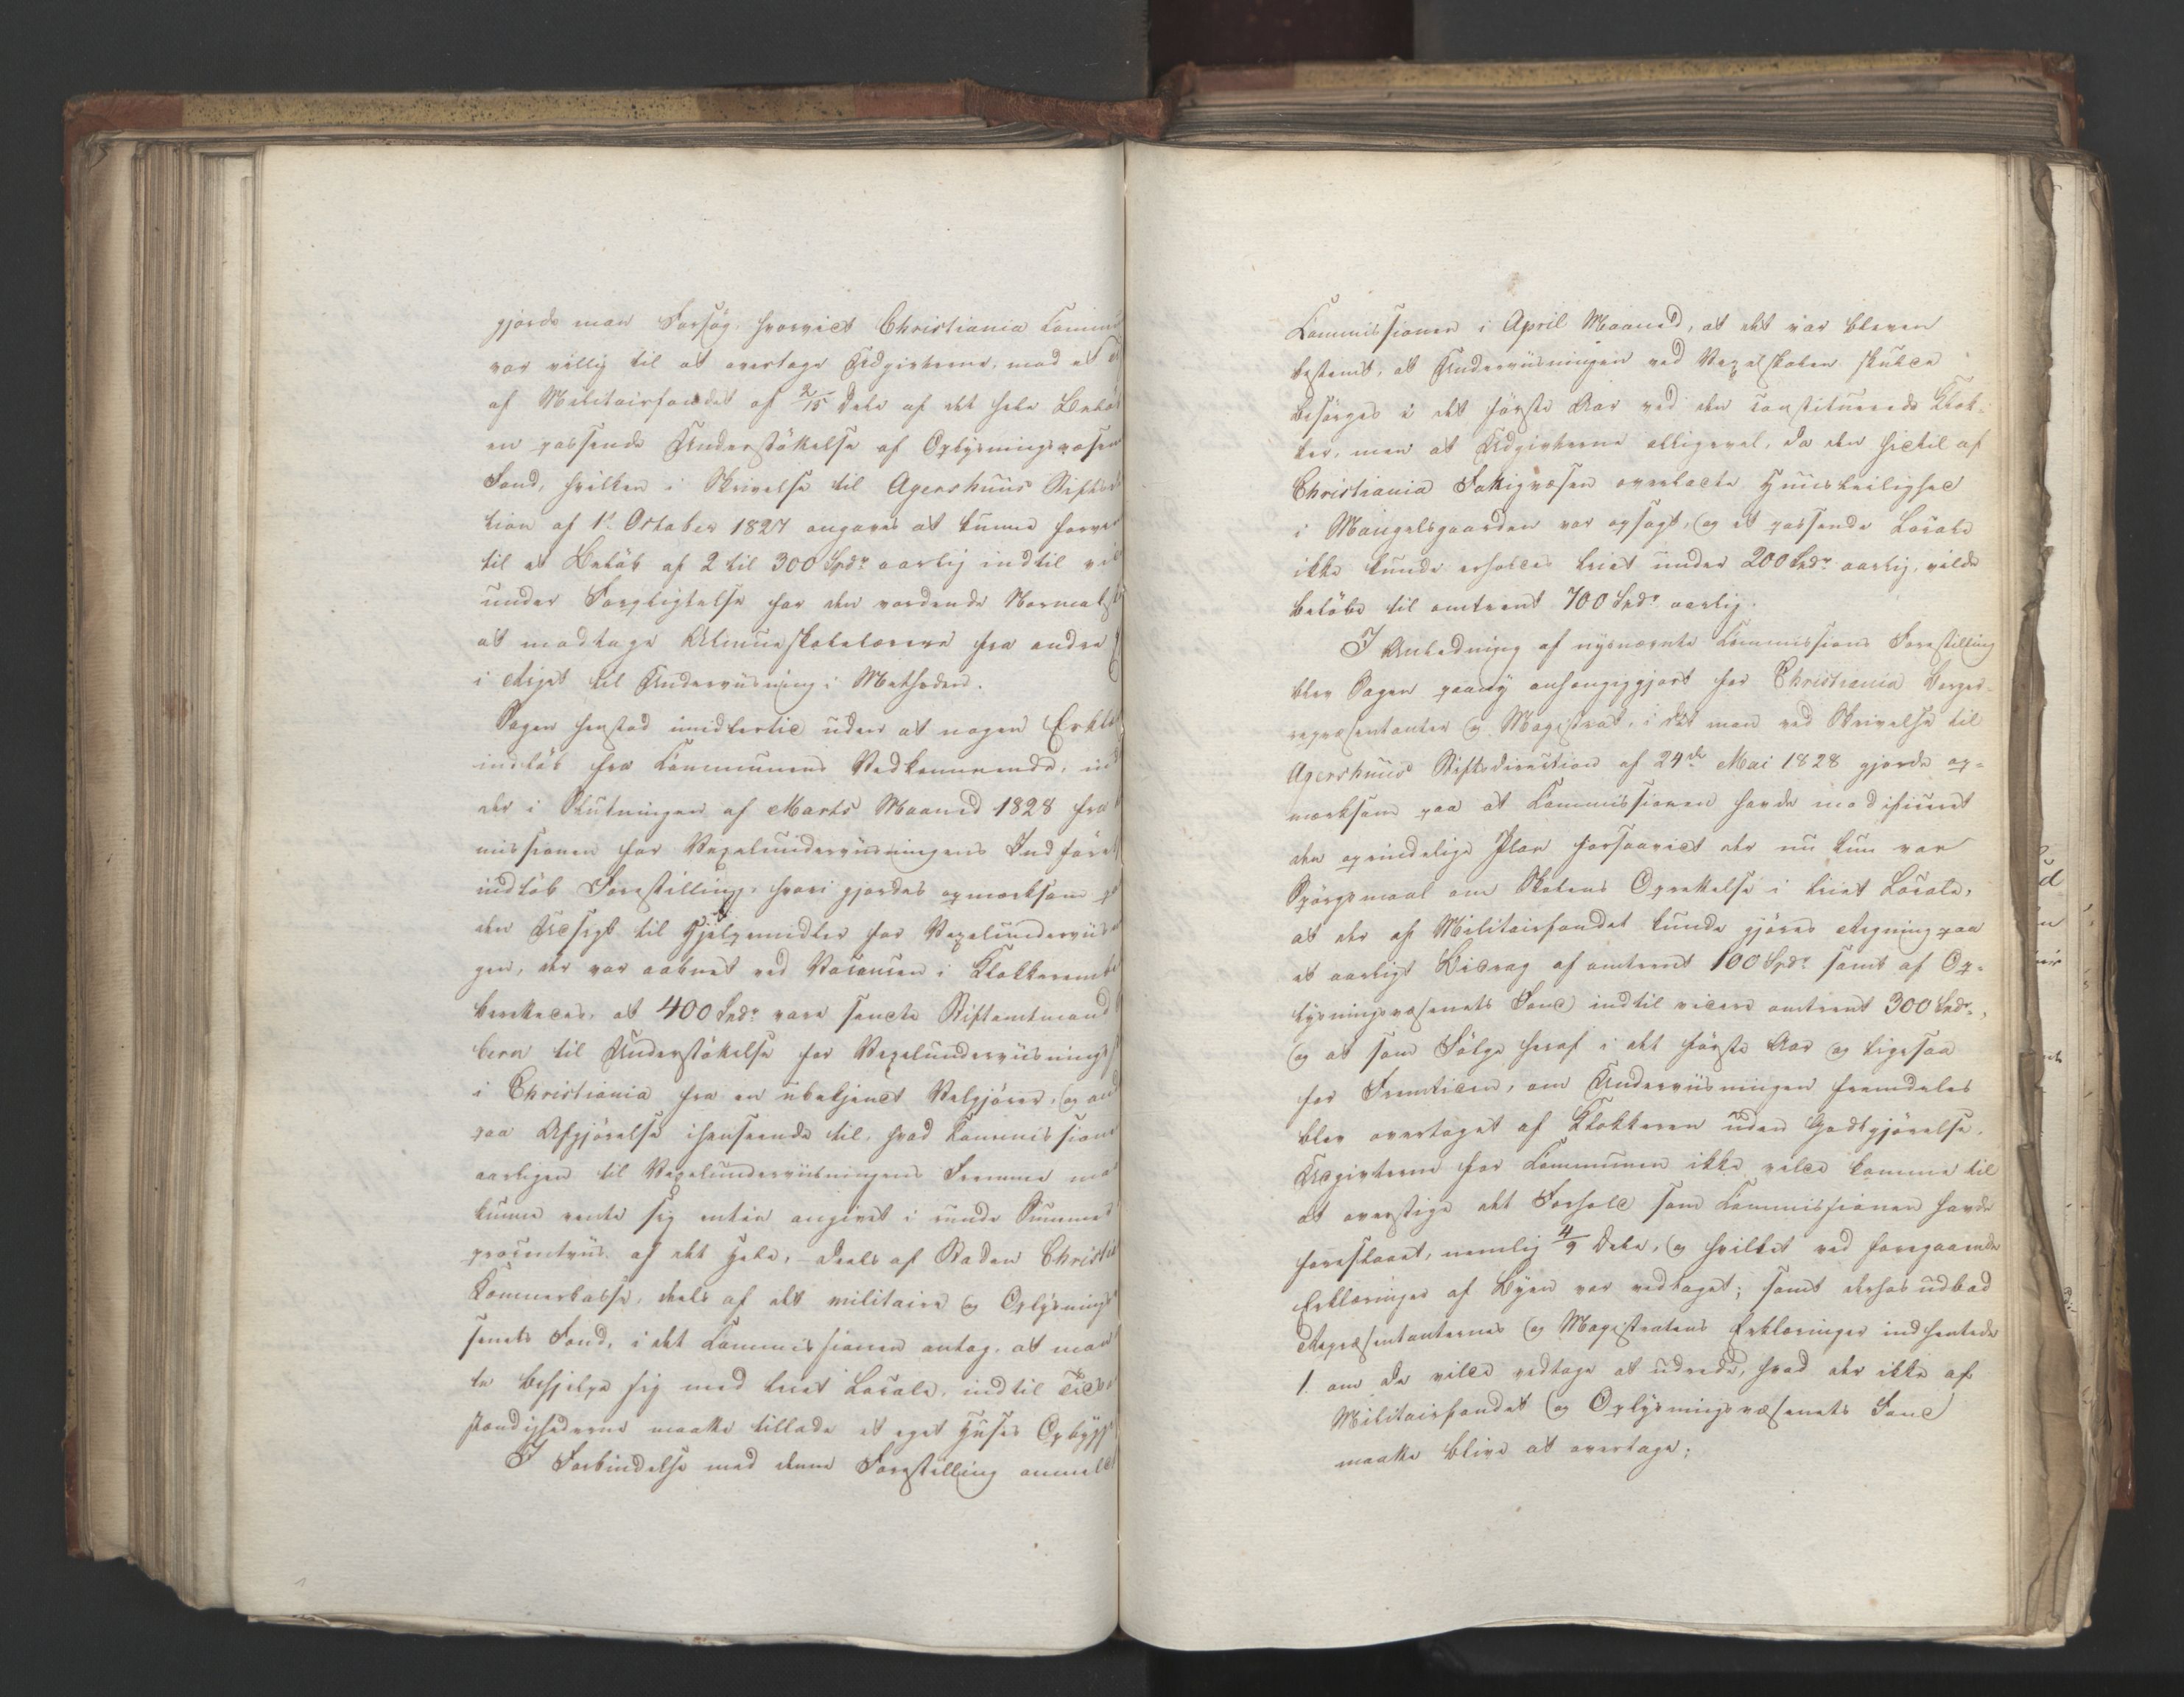 gjorde man Forsøg, hvorvidt Christiania Commu
var villig til at overtage Udgivterne, mod et
af Militairfondet af 2/15 Dele af det hele Beløb
en passende Understøttelse af Oplysningsvæsen
Fond, hvilken i Skrivelse til Agershuus Stiftsdi
tion af 1ste October 1827 angaves at kunne forven
til et Beløb af 2 til 300 Spdr aarlig indtil vi
under Forpligtelse for den vordende Normalsk
at modtage Almueskolelærere fra andre
i Riget til Underviisning i Methoden.
Sagen henstod imidlertid uden at nogen Erklæ
indløb fra Communens Vedkommende, ind
der i Slutningen af Marts Maaned 1828 fra
missionen for Vexelunderviisningens Indførel
indløb Forestilling, hvori gjordes opmærksom p
den Udsigt til Hjelpemidler for Vexelunderviis
gen, der var aabnet ved Vacancen i Klokkerembe
berettedes, at 400 Spdr vare sendte Stiftamtmand
bern til Understøttelse for Vexelunderviisnings
i Christiania fra en ubekjendt Velgjører, og and
paa Afgjørelse ihenseende til, hvad Commission
aarligen til Vexelunderviisningens Fremme maa
kunne vente sig enten angivet i runde Summer
procentviis af det Hele, deels af Staden Christia
Kæmnerkasse, deels af det militaire og Oplysnings
senets Fond, i det Commissionen antog, at man
te behjelpe sig med leiet Locale, indtil Tids
stændighederne maatte tillade et eget Huses Opbygg
I Forbindelse med denne Forestilling anmeldt
Commissionen i April Maaned, at det var bleven
bestemt, at Underviisningen ved Vexelskolen skulde
besørges i det første Aar ved den constituerede Klok-
ker, men at Udgivterne alligevel, da den hidtil af
Christiania Fattigvæsen overladte Huusleilighed
i Mangelsgaarden var opsagt, og et passende Locale
ikke kunde erholdes leiet under 200 Spdr aarlig, vilde
beløbe til omtrent 700 Spdr aarlig.
I Anledning af nysnævnte Commissions Forestilling
blev Sagen paany anhængiggjort for Christiania Borger-
repræsentanter og Magistrat, i det man ved Skrivelse til
Agershuus Stiftsdirection af 24de Mai 1828 gjorde op-
mærksom paa at Commissionen havde modificeret
den oprindelige Plan forsaavidt der nu kun var
Spørgsmaal om Skolens Oprettelse i leiet Locale,
at der af Militairfondet kunde gjøres Regning paa
et aarligt Bidrag af omtrent 100 Spdr samt af Op-
lysningsvæsenets Fond indtil videre omtrent 300 Spdr,
og at som Følge heraf i det første Aar og ligesaa
for Fremtiden, om Underviisningen fremdeles
blev overtaget af Klokkeren uden Godtgjørelse,
Udgivterne for Communen ikke vilde komme til
at overstige det Forhold som Commissionen havde
foreslaaet, nemlig 4/9 Dele, og hvilket ved foregaaende
Erklæringer af Byen var vedtaget; samt derhos udbad
Repræsentanternes og Magistratens Erklæringer indhentede
1. om de vilde vedtage at udrede, hvad der ikke af
Militairfondet og Oplysningsvæsenets Fond
maatte blive at overtage;